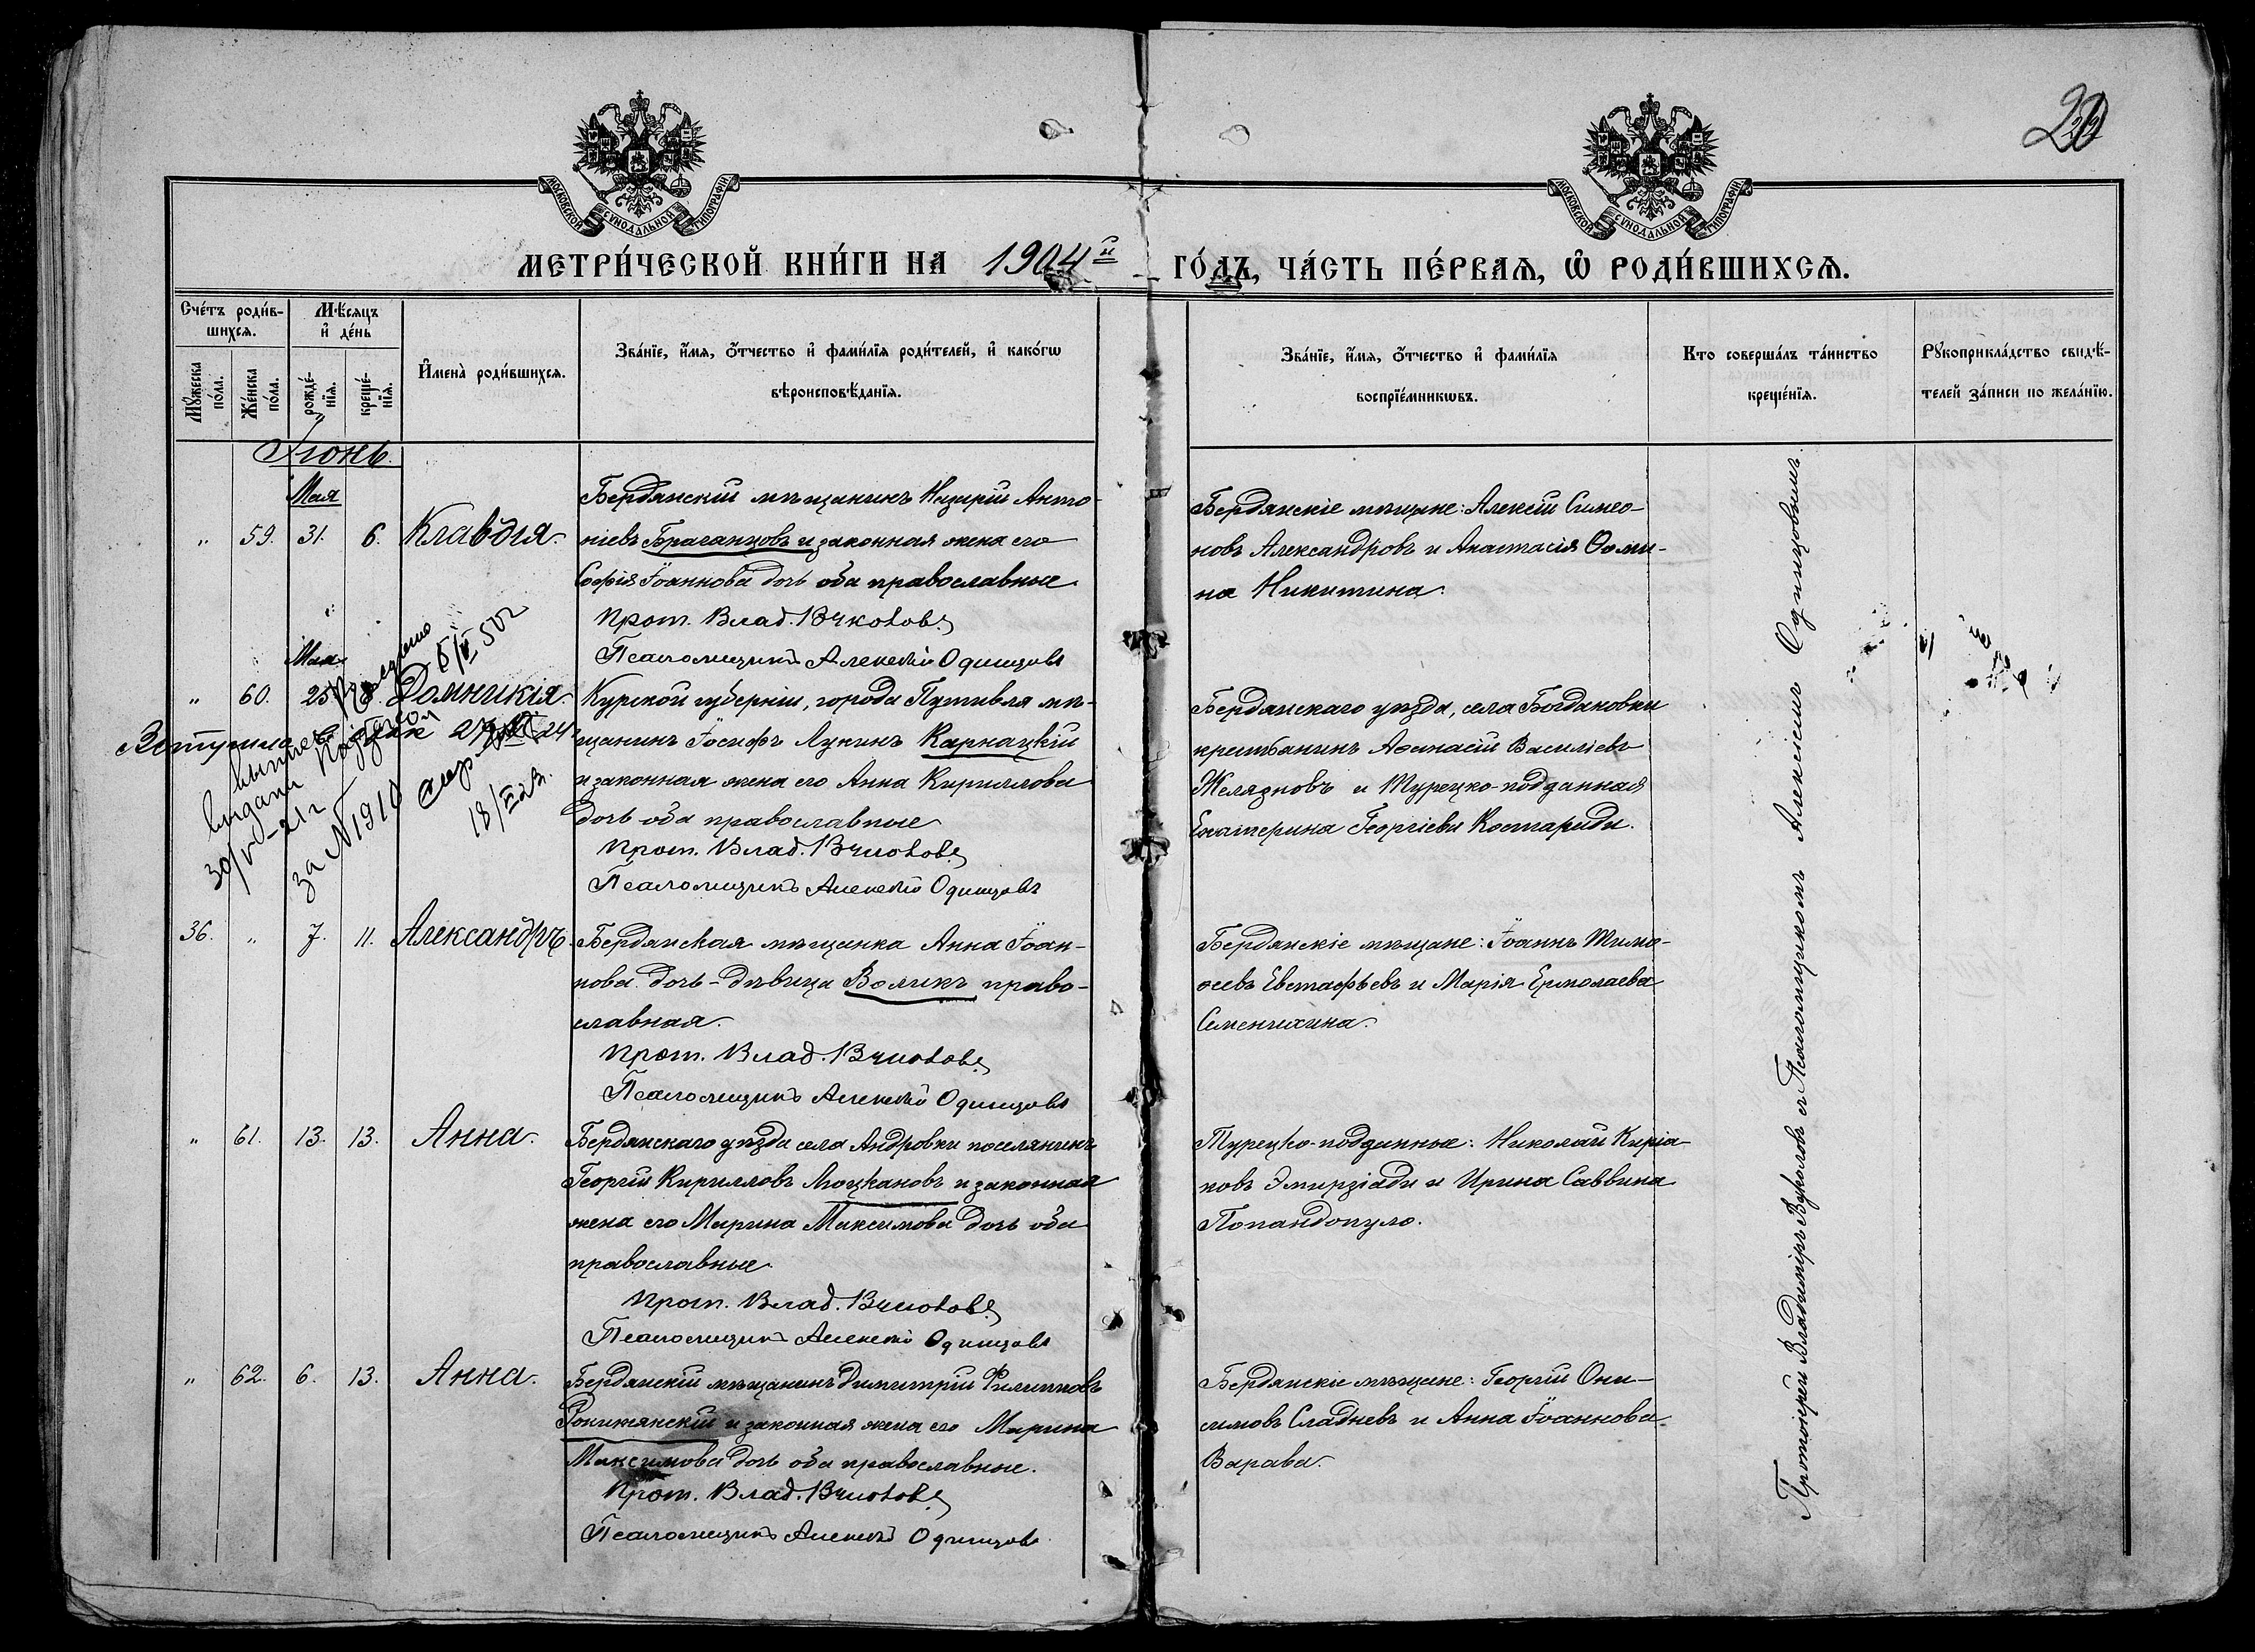 20
МОСКОВСКОЙ СѴНОДАЛЬНОЙ ТИПОГРАФІИ
МОСКОВСКОЙ СѴНОДАЛЬНОЙ ТИПОГРАФІИ
МЕТРИ́ЧЕСКОЙ КНИ́ГИ НА 1904й ГО́ДЪ, ЧА́СТЬ ПЕ́РВАЯ, Ѿ РОДИ́ВШИХСЯ.
Сче́тъ роди́в-
шихся.
Мꙋ́жеска по́ла.
Же́нска по́ла.
Мѣ́сяцъ
и҆ де́нь
рожде́-
нїя.
креще́-
нїя.
И҆мена̀ роди́вшихся.
Зва́нїе, и҆́мя, ѻ҆́тчество и҆ фами́лїя роди́телей, и҆ како́гѡ
вѣроисповѣ́данїя.
Зва́нїе, и҆́мя, ѻ҆́тчество и҆ фами́лїя
воспрїе́мникѡвъ.
Кто̀ соверша́лъ та́инство
креще́нїя.
Рꙋкоприкла́дство свидѣ́-
телей за́писи по жела́нїю.
Іюнь.
Мая
„ 59. 31. 6. Клавдія.
Бердянскій мѣщанинъ Назарій Анто-
ніевъ Браганцовъ и законная жена его
Софія Іоаннова дочь оба православные
Прот. Влад. Вуколовъ
Псаломщикъ Алексѣй Одинцовъ
Бердянскіе мѣщане: Алексій Симео-
новъ Александровъ и Анастасія Ѳоми-
на Никитина.
Мая
„ 60. 25 Домникія.
5/V 50г
Вступила в брак
выпись
выдана
30/V-21г
за №1910
18/ 23.
Курской губерніи, города Путивля мѣ-
щанинъ Іосифъ Лукинъ Карнацкій
и законная жена его Анна Кириллова
дочь оба православные
Прот. Влад. Вуколовъ
Псаломщикъ Алексѣй Одинцовъ
Бердянскаго уѣзда, села Богдановки
крестьянинъ Аѳанасій Василіевъ
Желязновъ и Турецко-подданная
Екатерина Георгіева Костариди.
36. „ 7. 11. Александръ.
Бердянская мѣщанка Анна Іоан-
нова дочь-дѣвица Воликъ право-
славная.
Прот. Влад. Вуколовъ
Псаломщикъ Алексѣй Одинцовъ
Бердянскіе мѣщане: Іоаннъ Тимо-
ѳеевъ Евстафьевъ и Марія Ермолаева
Семенихина.
„ 61. 13. 13. Анна.
Бердянскаго уѣзда села Андровки поселянинъ
Георгій Кирилловъ Люцкановъ и законная
жена его Марина Максимова дочь оба
православные.
Прот. Влад. Вуколовъ
Псаломщикъ Алексѣй Одинцовъ
Турецко-подданные: Николай Киріа-
ковъ Эмирзіади и Ирина Саввина
Попандопуло.
„ 62. 6. 13. Анна.
Бердянскій мѣщанинъ Димитрій Филипповъ
и законная жена его Марина
Максимова дочь оба православные.
Прот. Влад. Вуколовъ
Псаломщикъ Алексѣй Одинцовъ
Бердянскіе мѣщане: Георгій Они-
симовъ Сладневъ и Анна Іоаннова
Варава.
Протоіерей Владиміръ Вуколовъ съ Псаломщикомъ Алексіемъ Одинцовымъ.